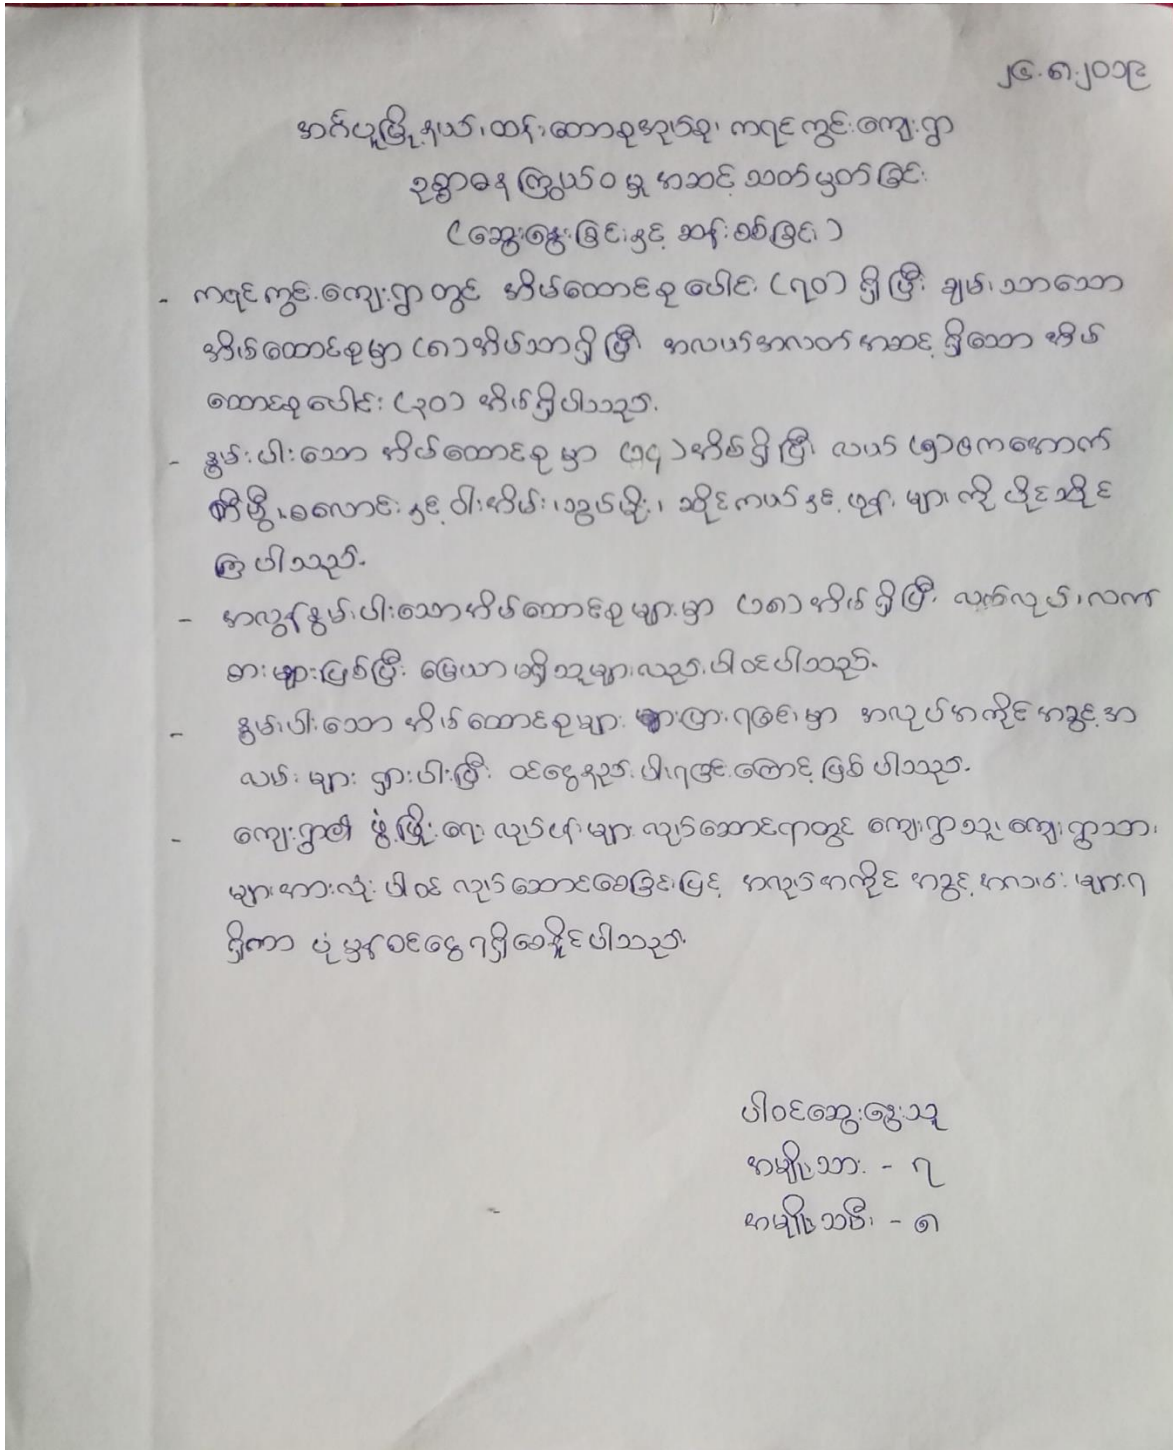 ၂၄.၈.၂၀၁၉
အင်္ဂပူမြို့နယ်၊ ထန်းတောစုအုပ်စု၊ ကရင်ကွင်းကျေးရွာ
ဥစ္စာဓနကြွယ်ဝမှုအဆင့်သတ်မှတ်ခြင်း
(ဆွေးနွေးခြင်းနှင့် ဆန်းစစ်ခြင်း)
- ကရင်ကွင်းကျေးရွာတွင် အိမ်ထောင်စုပေါင်း (၇၀) ရှိပြီး ချမ်းသာသော
အိမ်ထောင်စုမှာ (၈) အိမ်သာရှိပြီး အလယ်အလတ်အဆင့်ရှိသော အိမ်
ထောင်စုပေါင်း (၃၀) အိမ်ရှိပါသည်။
- နွမ်းပါးသော အိမ်ထောင်စုမှာ (၁၄) အိမ်ရှိပြီး လယ် (၅) ဧကအောက်
တီဗွီ၊ စလောင်းနှင့် ဝါးအိမ်၊ သွပ်မိုး၊ ဆိုင်ကယ်နှင့် ဖုန်းများကို ပိုင်ဆိုင်
ကြပါသည်။
- အလွန်နွမ်းပါးသောအိမ်ထောင်စုများမှာ (၁၈) အိမ်ရှိပြီး လက်လုပ်၊ လက်
စားများဖြစ်ပြီး မြေယာမရှိသူများလည်းပါဝင်ပါသည်။
- နွမ်းပါးသော အိမ်ထောင်စုများ များပြားရခြင်းမှာ အလုပ်အကိုင်အခွင့်အ
လမ်းများ ရှားပါးပြီး ဝင်ငွေနည်းပါးရခြင်းကြောင့်ဖြစ်ပါသည်။
- ကျေးရွာ၏ ဖွံ့ဖြိုးရေးလုပ်ငန်းများ လုပ်ဆောင်ရာတွင် ကျေးရွာသူ၊ ကျေးရွာသား
များအားလုံး ပါဝင်လုပ်ဆောင်စေခြင်းဖြင့် အလုပ်အကိုင်အခွင့်အလမ်းများရ
ရှိကာ ပုံမှန်ဝင်ငွေရရှိစေနိုင်ပါသည်။
ပါဝင်ဆွေးနွေးသူ
အမျိုးသား - ၇
အမျိုးသမီး - ၈